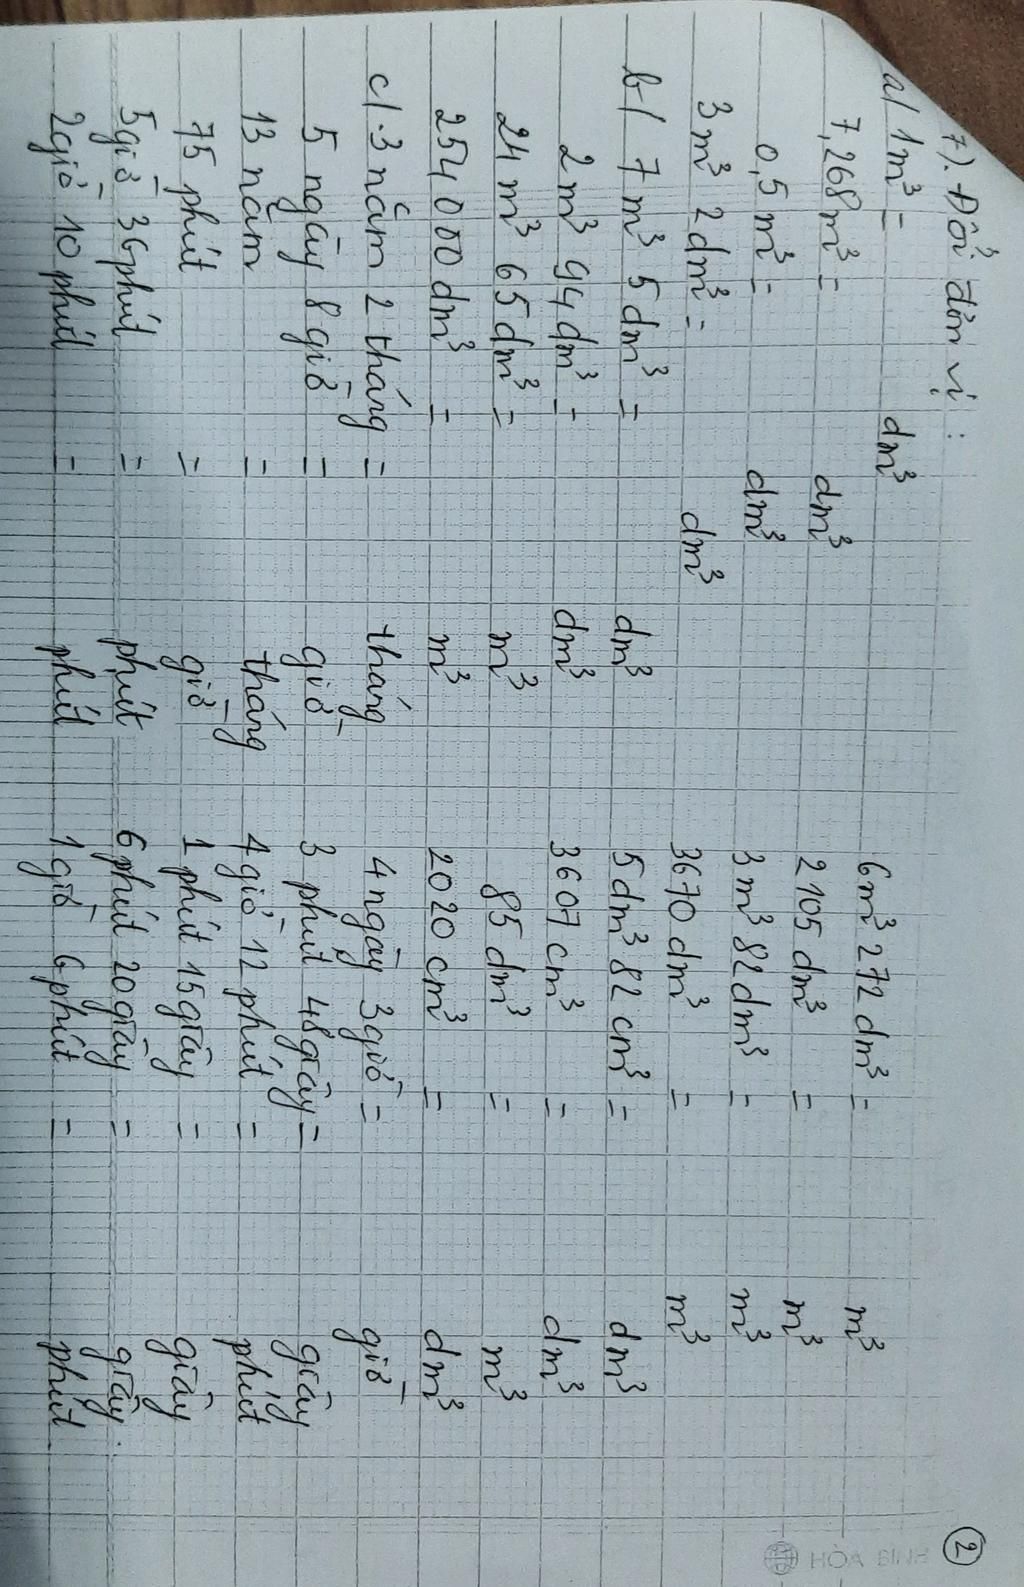 2
7). Đổi đơn vị:
a/ 1m³ = dm³ 6m³ 272 dm³ = m³
7,268m³ = dm³ 2105 dm³ = m³
0,5 m³ = dm³ 3m³ 82dm³ = m³
3m³ 2dm³ = dm³ 3670 dm³ = m³
b/ 7m³ 5dm³ = dm³ 5dm³ 82 cm³ = dm³
2m³ 94dm³ = dm³ 3607 cm³ = dm³
24 m³ 65dm³ = m³ 85 dm³ = m³
254000 dm³ = m³ 2020 cm³ = dm³
c/. 3 năm 2 tháng = tháng 4 ngày 3giờ = giờ
5 ngày 8 giờ = giờ 3 phút 48giây = giây
13 năm = tháng 4 giờ 12 phút = phút
75 phút = giờ 1 phút 15giây = giây
5giờ 36phút = phút 6 phút 20giây = giây.
2giờ 10 phút = phút 1giờ 6phút = phút
HÒA BÌNH